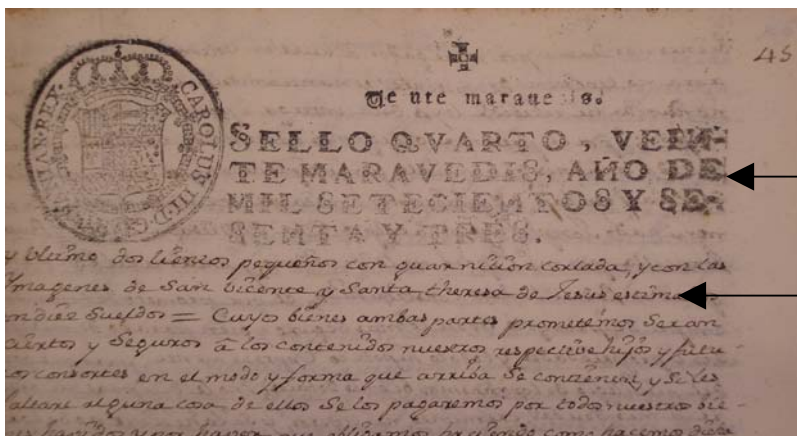 45
Veinte maravedis.
CAROLUS III. D. G. HISPAN. REX.
SELLO QVARTO, VEIN-
TE MARAVEDIS, AÑO DE
MIL SETECIENTOS Y SE-
SENTA Y TRES.
y ultimo dos lienzos pequeños con guarnicion cortada, y con las
Ymagenes de San Vicente y Santa Theresa de Jesus estimados
en diez sueldos = Cuyos bienes ambas partes prometemos seran
ciertos y seguros à los contenidos nuestros respective hijos y futu-
ros consortes en el modo y forma que arriba se contienen, y si les
faltare alguna cosa de ellos se los pagaremos por todos nuestros bie-